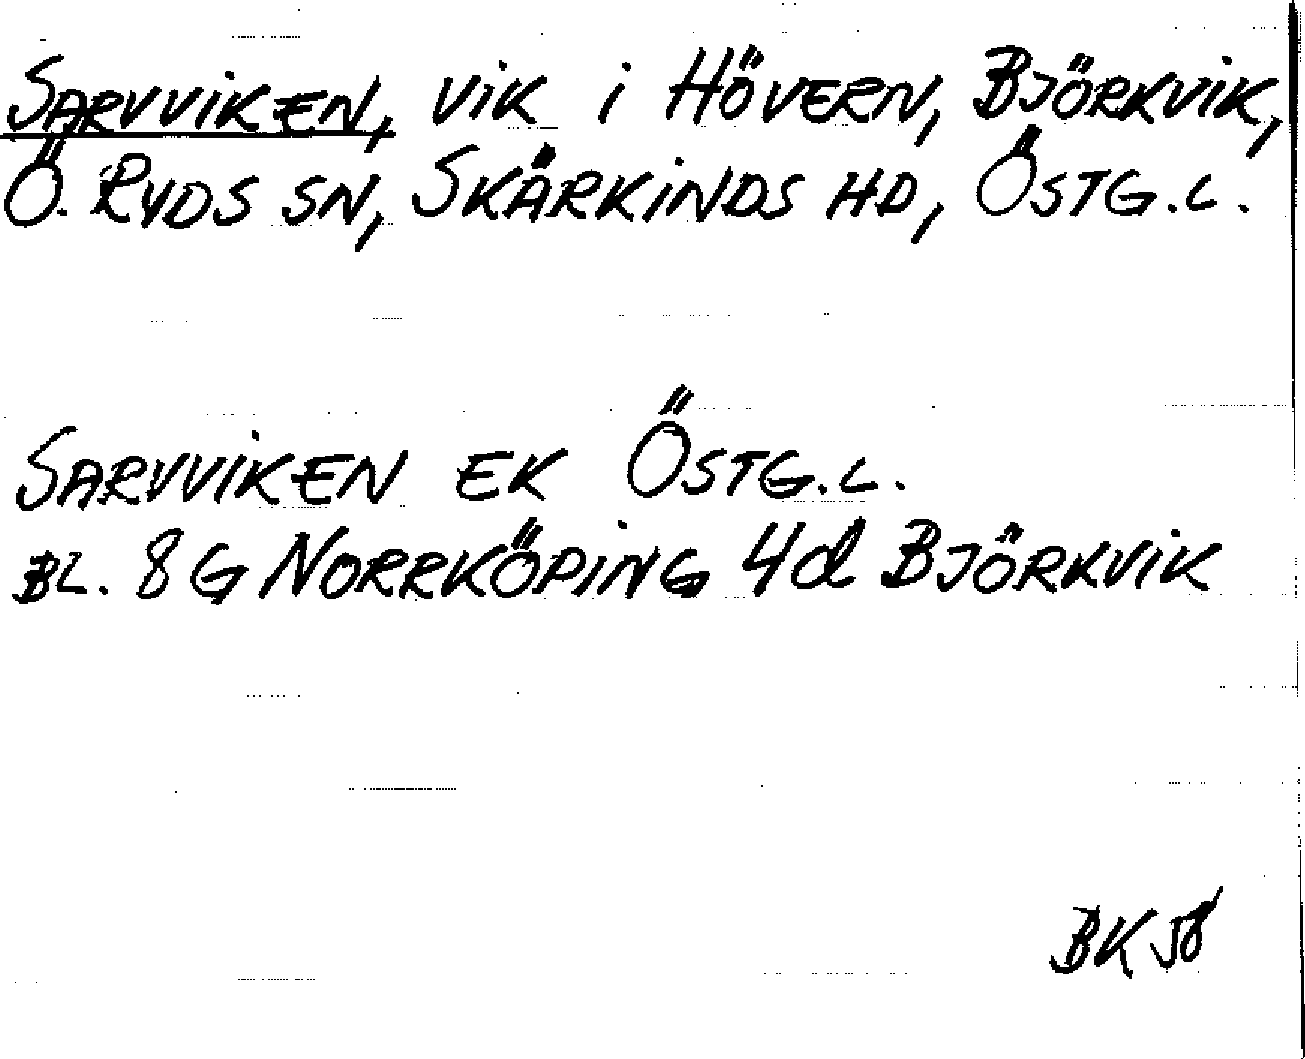 SARVVIKEN, VIK I HÖVERN, BJÖRKVIK,
Ö. RYDS SN, SKÄRKINDS HD, ÖSTG.L.
SARVVIKEN EK ÖSTG.L.
BL. 8G NORRKÖPING 4d BJÖRKVIK